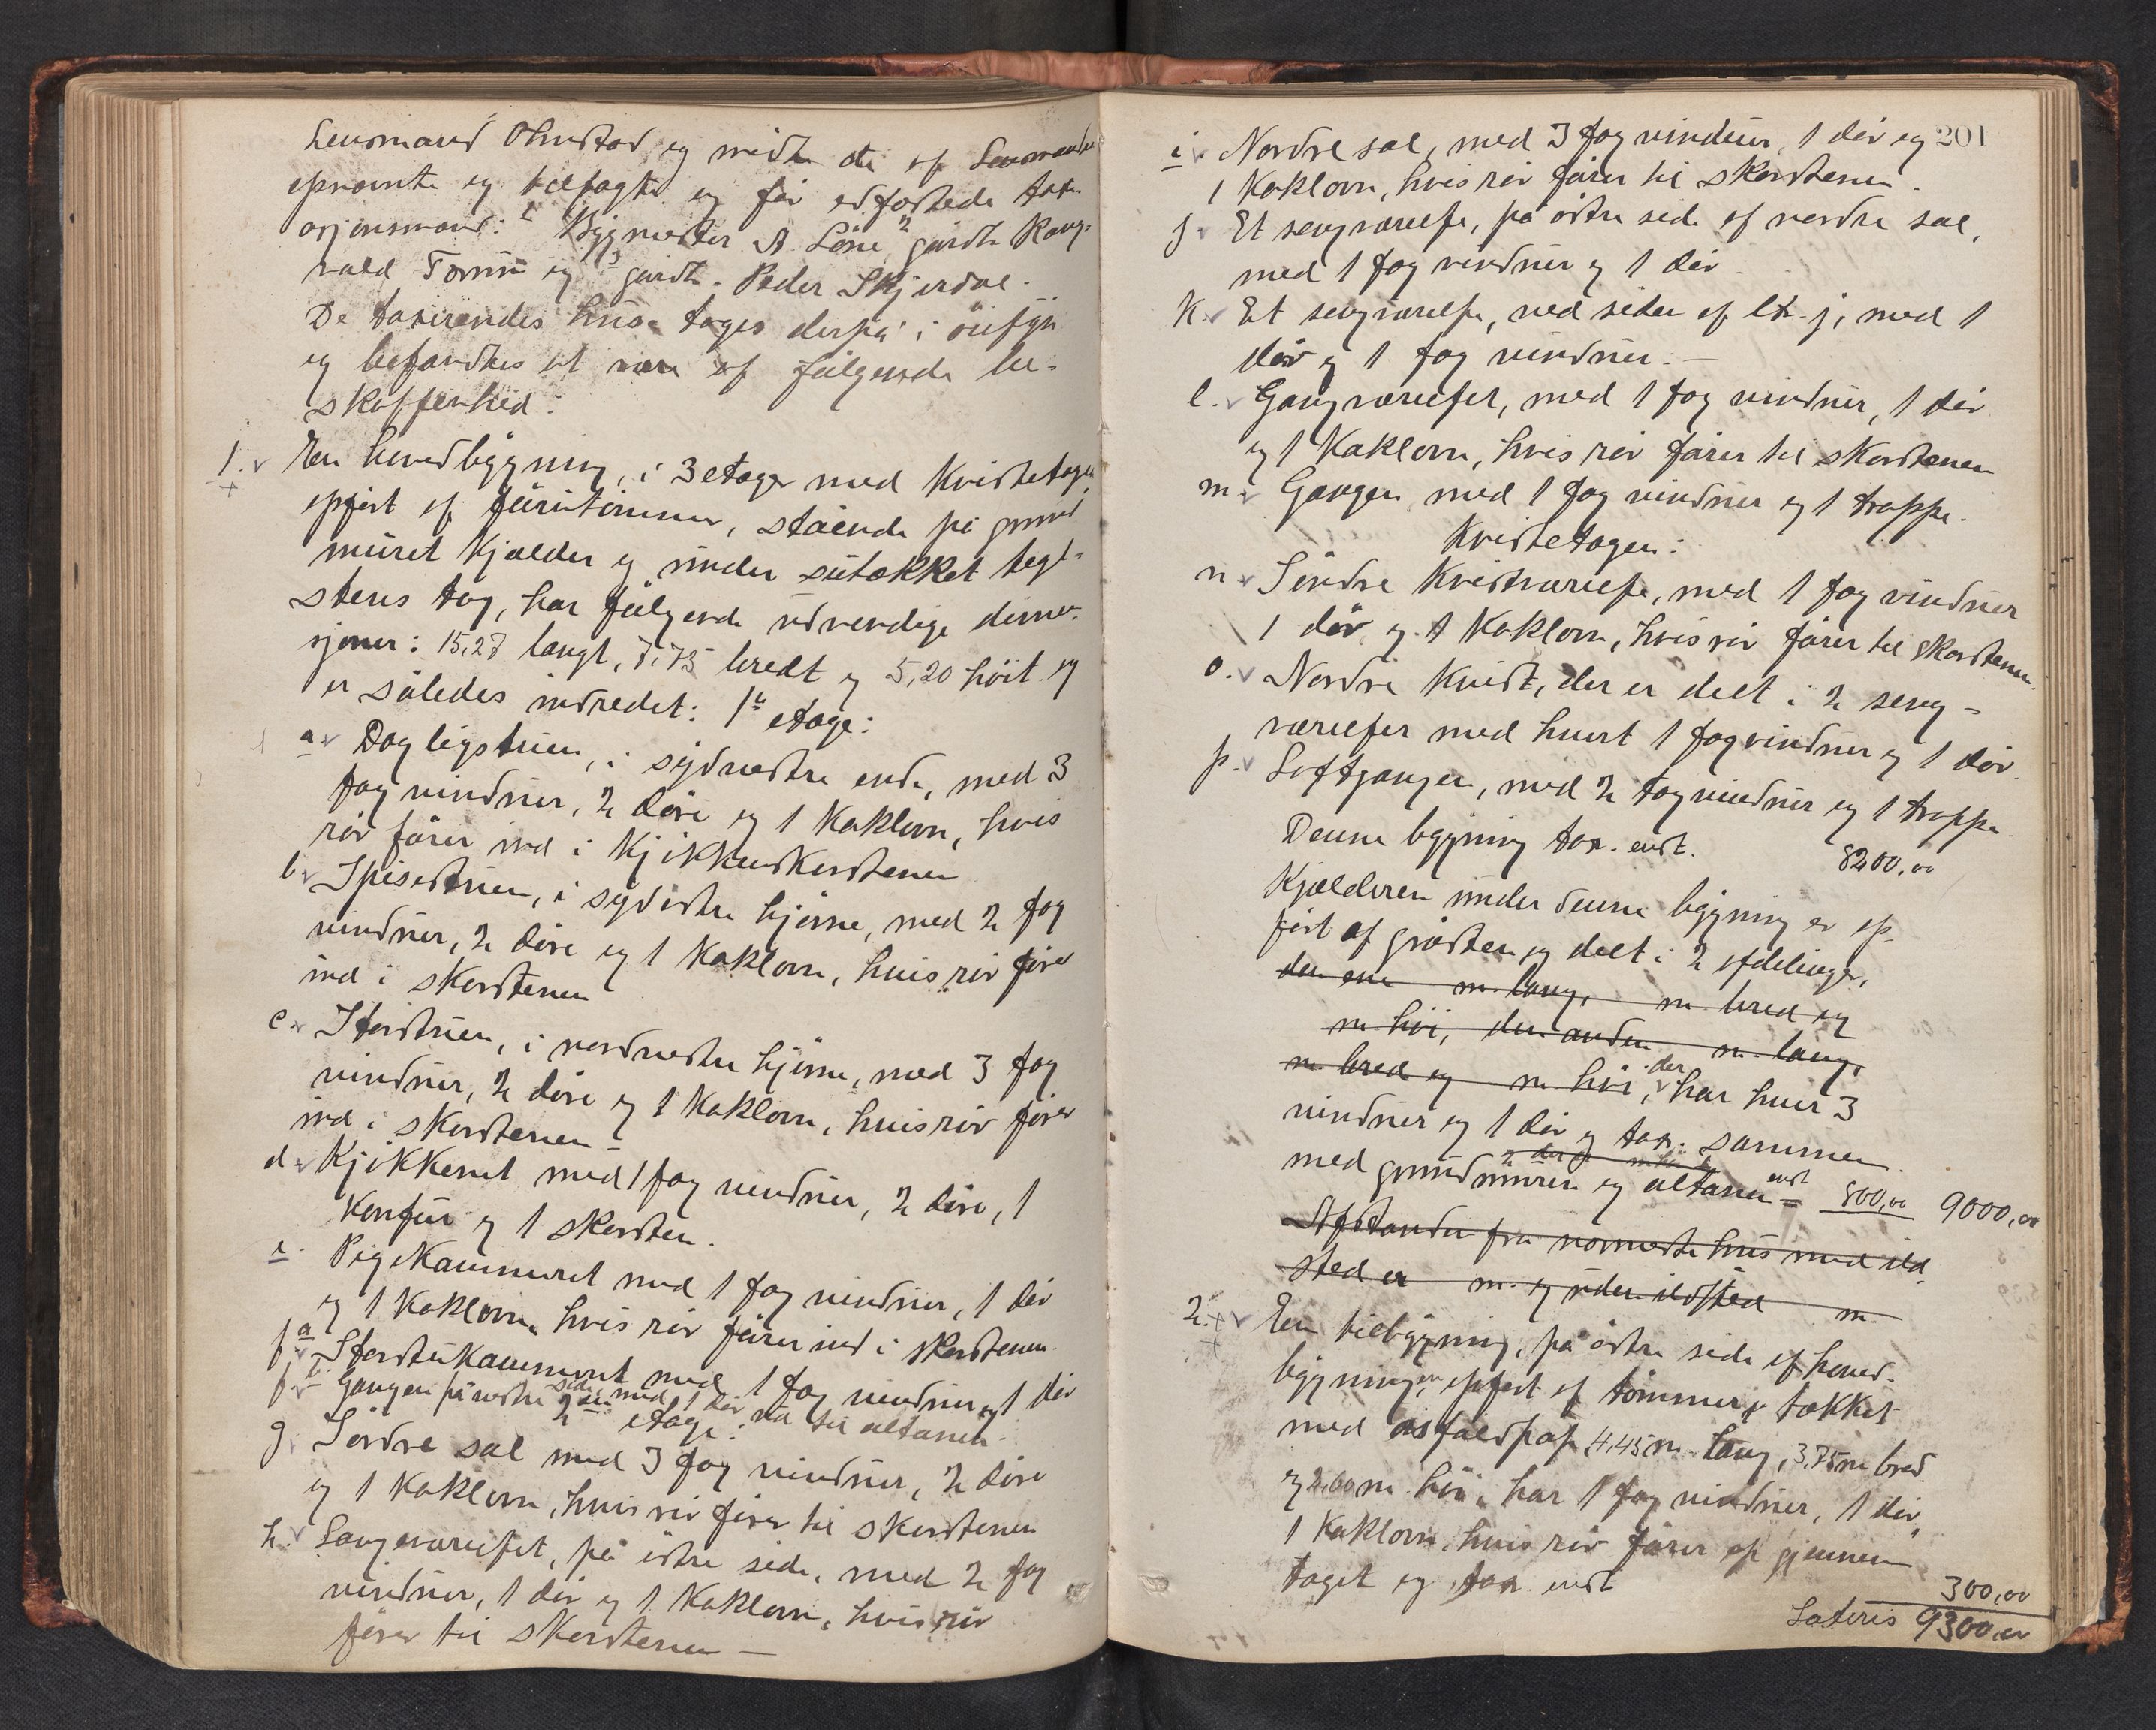 Lensmand Olmstad og mødte de af Lensmanden
opnævnte og tilsagte og før edfæstede taxa-
sjonsmænd: 1 Bygmester A Löne 2 gårdbr. Ragn-
vald Tomu og 3 gårdbr. Peder Skjerdal.
De taxerendes huse toges derpå i öiesyn
og befandtes at være af fölgende be-
skaffenhed:
1. En hovedbygning, i 3 etager med Kvistetage,
opfört af furutömmer, stående på grund
müret Kjælder og under sütækket tegl-
stens tag, har fölgende udvendige dimen-
sjoner: 15,28 langt, 7,75 bredt og 5,20 höit og
er således indredet: 1ste etage:
a. Dagligstuen, i sydvestre ende, med 3
fag vinduer, 2 döre og 1 Kaklovn, hvis
rör förer ind i Kjökkenskorstenen
b. Spisestuen, i sydöstre hjörne, med 2 fag
vinduer, 2 döre og 1 Kaklovn, hvis rör förer
ind i skorstenen
c. Storstuen, i nordvestre hjörne, med 3 fag
vinduer, 2 döre og 1 Kaklovn, hvis rör förer
ind i skorstenen
d. Kjökkenet med 1 fag vinduer, 2 döre, 1
Komfür og 1 skorsten.
e. Pigekammeret med 1 fag vinduer, 1 dör
og 1 Kaklovn, hvis rör förer ind i skorstenen
f. a Storstukammeret med 1 fag vinduer og 1 dör
f. b Gangen på vestre side med 1 dör ud til altanen.
2den etage:
g. Söndre sal med 3 fag vinduer, 2 döre
og 1 Kaklovn, hvis rör förer til skorstenen
h. Sengeværelset, på östre side, med 2 fag
vinduer, 1 dör og 1 Kaklovn, hvis rör
förer til skorstenen —
201
i. Nordre sal, med 3 fag vinduer, 1 dör og
1 Kaklovn, hvis rör förer til skorstenen.
j. Et sengværelse, på östre side af nordre sal,
med 1 fag vinduer og 1 dör
k. Et sengværelse, ved siden af litr. j, med 1
dör og 1 fag vinduer. —
l. Gangværelset, med 1 fag vinduer, 1 dör
og 1 Kaklovn, hvis rör förer til skorstenen
m. Gangen med 1 fag vinduer og 1 trappe.
Kvistetagen:
n. Söndre Kvistværelse, med 1 fag vinduer
1 dör og 1 Kaklovn, hvis rör förer til skorstenen.
o. Nordre Kvist, der er delt i 2 seng-
værelser med hvert 1 fag vinduer og 1 dör.
p. Loftgangen, med 2 fag vinduer og 1 trappe.
Denne bygning tax. endt. 8200,00
Kjælderen under denne bygning er op-
fört af gråsten og delt i 2 afdelinger,
den ene m. lang, m. bred og
m höi, den anden m. lang,
m. bred og m. höi, der har hver 3
vinduer og 1 dör og tax. sammen
med grundmüren og altanen endt = 800,00 9000,00
Afstanden fra nærmeste hus med ild-
sted er m. og uden ildsted m.
2. En tilbygning, på östre side af hoved-
bygningen, opfört af tömmer, tækket
med asfaldpap, 4,45 m. lang, 3,75 m bred
og 2,60 m. höi, har 1 fag vinduer, 1 dör,
1 Kaklovn, hvis rör förer op gjennem
taget og tax. endt 300,00
Lateris 9300,00